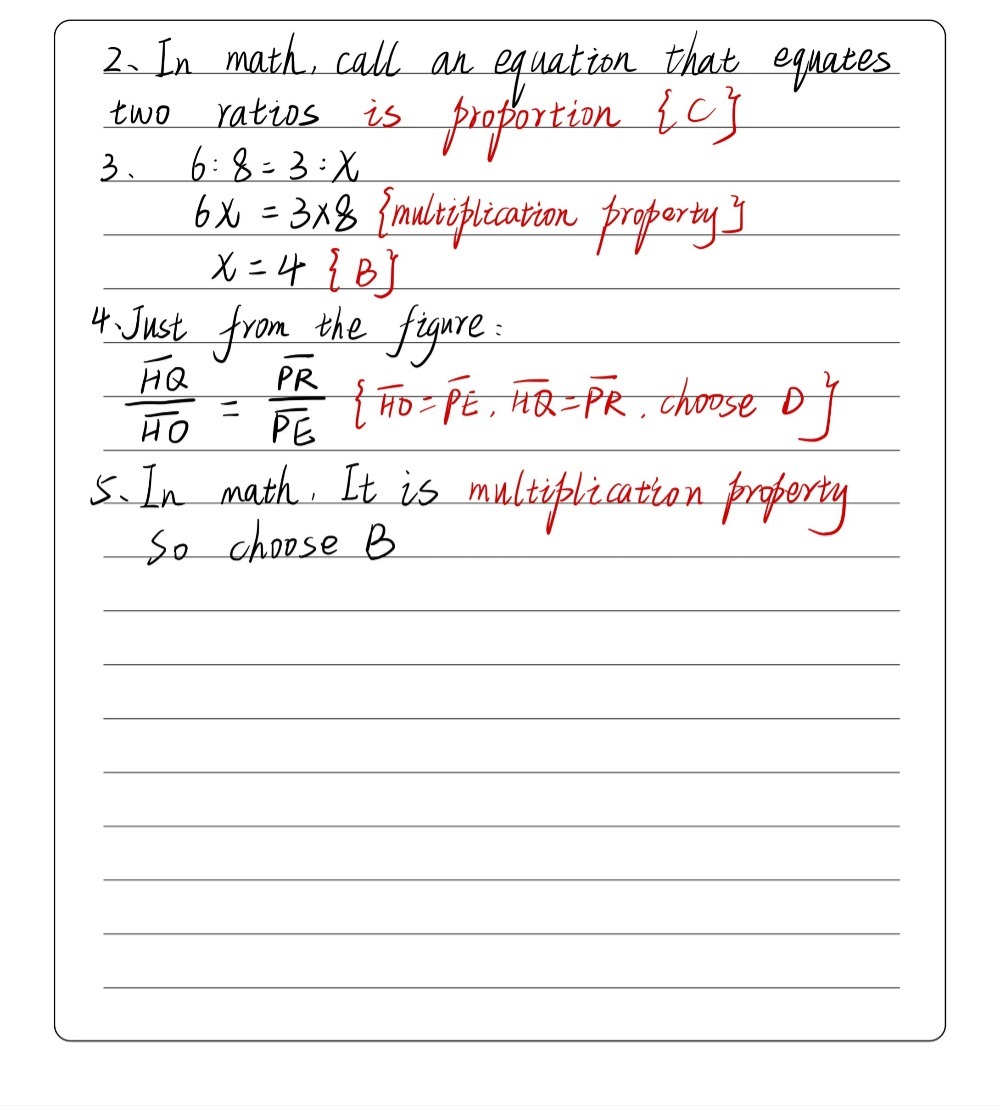 2、In math, call an equation that equates
two ratios is proportion {C}
3. 6:8=3:X
6X = 3×8 {multiplication property}
X = 4 {B}
4、Just from the figure:
H̅Q̅/H̅O̅ = P̅R̅/P̅E̅ {H̅O̅=P̅E̅, H̅Q̅=P̅R̅, choose D}
5、In math, It is multiplication property
So choose B